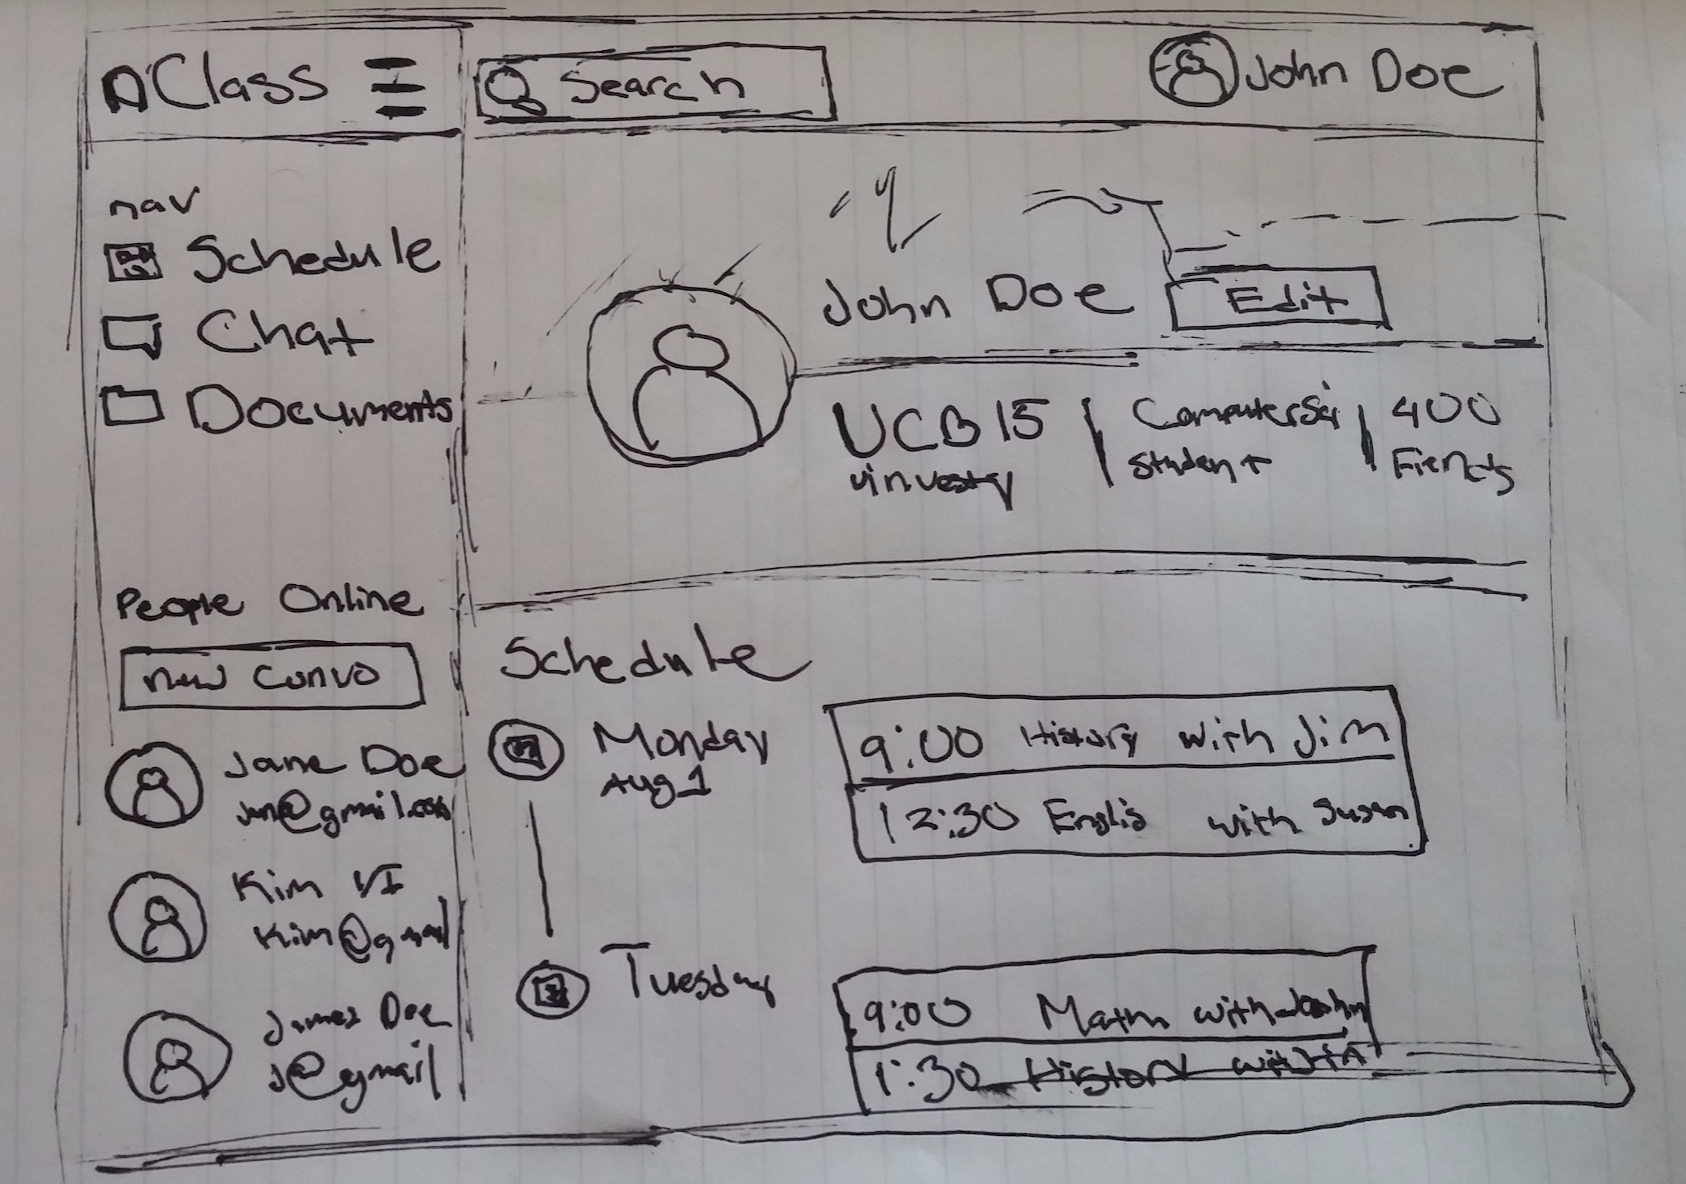 Class
Search
John Doe
nav
Schedule
Chat
Documents
People Online
new convo
Jane Doe
@gmail.com
Kim VI
Kim@gmail
James Doe
J@gmail
John Doe
Edit
UCB 15
Computer Sci
Student
400
Schedule
Monday
Aug 1
9:00 History with Jim
12:30 Englis with Susan
Tuesday
9:00 Math with John
1:30 History with